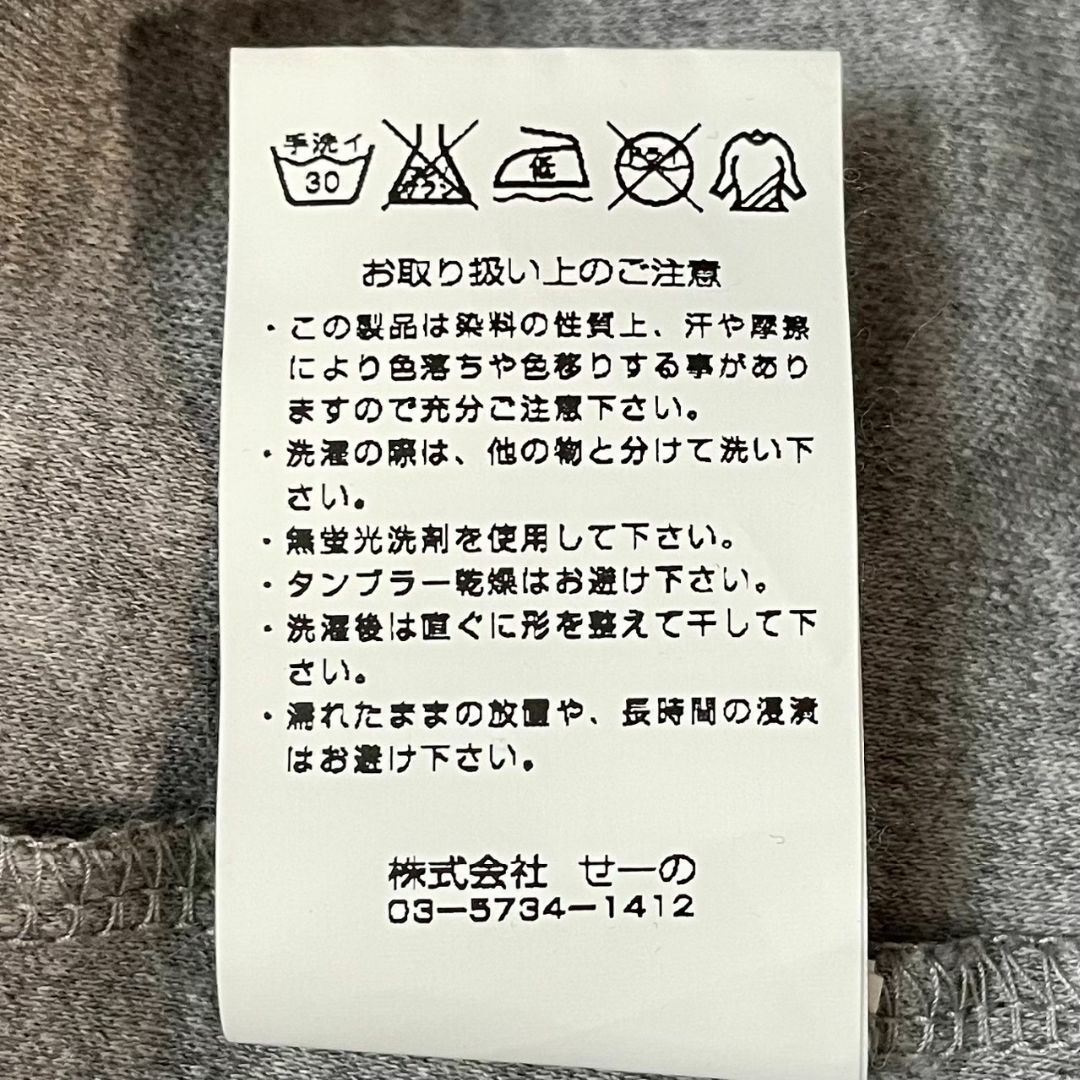 手洗イ 30 エンソサラシ 低 ドライ
お取り扱い上のご注意
・この製品は染料の性質上、汗や摩擦
により色落ちや色移りする事があり
ますので充分ご注意下さい。
・洗濯の際は、他の物と分けて洗い下
さい。
・無蛍光洗剤を使用して下さい。
・タンブラー乾燥はお避け下さい。
・洗濯後は直ぐに形を整えて干して下
さい。
・濡れたままの放置や、長時間の浸漬
はお避け下さい。
株式会社 せーの
03-5734-1412